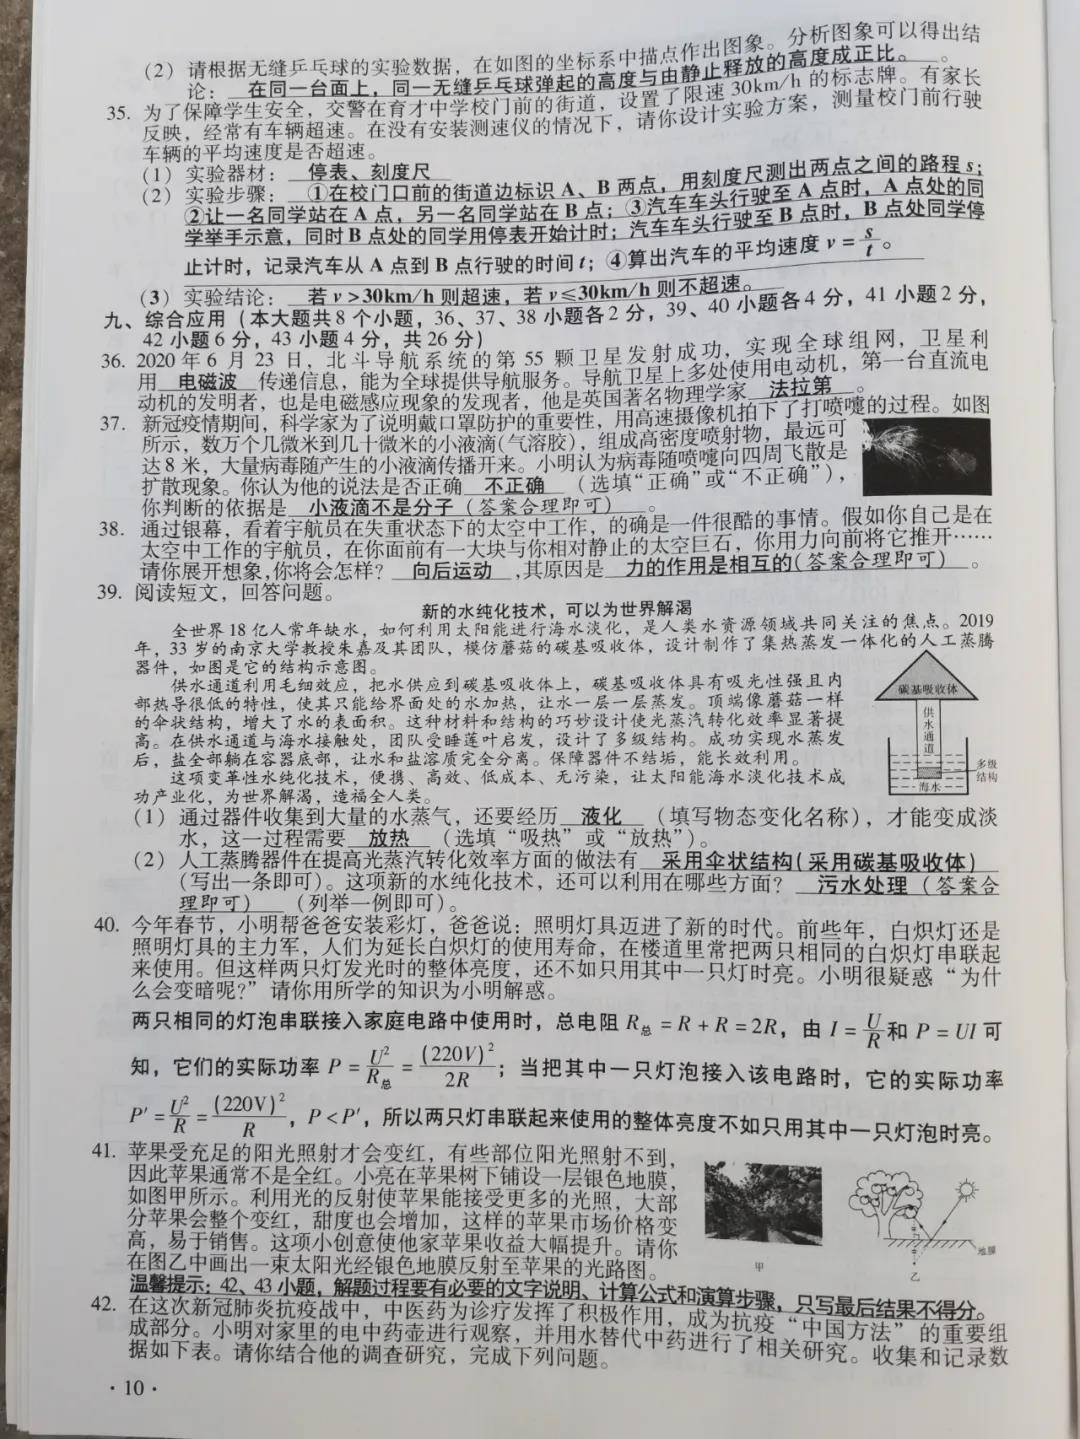 (2) 请根据无缝乒乓球的实验数据，在如图的坐标系中描点作出图象。分析图象可以得出结
论：在同一台面上，同一无缝乒乓球弹起的高度与由静止释放的高度成正比。
35. 为了保障学生安全，交警在育才中学校门前的街道，设置了限速30km/h的标志牌。有家长
反映，经常有车辆超速。在没有安装测速仪的情况下，请你设计实验方案，测量校门前行驶
车辆的平均速度是否超速。
(1) 实验器材：停表、刻度尺
(2) 实验步骤：①在校门口前的街道边标识A、B两点，用刻度尺测出两点之间的路程s；
②让一名同学站在A点，另一名同学站在B点；③汽车车头行驶至A点时，A点处的同
学举手示意，同时B点处的同学用停表开始计时；汽车车头行驶至B点时，B点处同学停
止计时，记录汽车从A点到B点行驶的时间t；④算出汽车的平均速度v=s/t。
(3) 实验结论：若v>30km/h则超速，若v≤30km/h则不超速。
九、综合应用（本大题共8个小题，36、37、38小题各2分，39、40小题各4分，41小题2分，
42小题6分，43小题4分，共26分）
36. 2020年6月23日，北斗导航系统的第55颗卫星发射成功，实现全球组网，卫星利
用电磁波传递信息，能为全球提供导航服务。导航卫星上多处使用电动机，第一台直流电
动机的发明者，也是电磁感应现象的发现者，他是英国著名物理学家法拉第。
37. 新冠疫情期间，科学家为了说明戴口罩防护的重要性，用高速摄像机拍下了打喷嚏的过程。如图
所示，数万个几微米到几十微米的小液滴(气溶胶)，组成高密度喷射物，最远可
达8米，大量病毒随产生的小液滴传播开来。小明认为病毒随喷嚏向四周飞散是
扩散现象。你认为他的说法是否正确不正确（选填“正确”或“不正确”），
你判断的依据是小液滴不是分子（答案合理即可）。
38. 通过银幕，看着宇航员在失重状态下的太空中工作，的确是一件很酷的事情。假如你自己是在
太空中工作的宇航员，在你面前有一大块与你相对静止的太空巨石，你用力向前将它推开……
请你展开想象,你将会怎样？向后运动,其原因是力的作用是相互的(答案合理即可)。
39. 阅读短文，回答问题。
新的水纯化技术，可以为世界解渴
全世界18亿人常年缺水，如何利用太阳能进行海水淡化，是人类水资源领域共同关注的焦点。2019
年，33岁的南京大学教授朱嘉及其团队，模仿蘑菇的碳基吸收体，设计制作了集热蒸发一体化的人工蒸腾
器件，如图是它的结构示意图。
供水通道利用毛细效应，把水供应到碳基吸收体上，碳基吸收体具有吸光性强且内
部热导很低的特性，使其只能给界面处的水加热，让水一层一层蒸发。顶端像蘑菇一样
的伞状结构，增大了水的表面积。这种材料和结构的巧妙设计使光蒸汽转化效率显著提
高。在供水通道与海水接触处，团队受睡莲叶启发，设计了多级结构。成功实现水蒸发
后，盐全部躺在容器底部，让水和盐溶质完全分离。保障器件不结垢，能长效利用。
这项变革性水纯化技术，便携、高效、低成本、无污染，让太阳能海水淡化技术成
功产业化，为世界解渴，造福全人类。
碳基吸收体
供水通道
多级
结构
海水
(1) 通过器件收集到大量的水蒸气，还要经历液化（填写物态变化名称），才能变成淡
水，这一过程需要放热（选填“吸热”或“放热”）。
(2) 人工蒸腾器件在提高光蒸汽转化效率方面的做法有采用伞状结构(采用碳基吸收体)
（写出一条即可）。这项新的水纯化技术，还可以利用在哪些方面？污水处理（答案合
理即可）（列举一例即可）。
40. 今年春节，小明帮爸爸安装彩灯，爸爸说：照明灯具迈进了新的时代。前些年，白炽灯还是
照明灯具的主力军，人们为延长白炽灯的使用寿命，在楼道里常把两只相同的白炽灯串联起
来使用。但这样两只灯发光时的整体亮度，还不如只用其中一只灯时亮。小明很疑惑“为什
么会变暗呢？”请你用所学的知识为小明解惑。
两只相同的灯泡串联接入家庭电路中使用时，总电阻R总=R+R=2R，由I=U/R和P=UI可
知，它们的实际功率P=U²/R总=(220V)²/2R；当把其中一只灯泡接入该电路时，它的实际功率
P′=U²/R=(220V)²/R，P<P′，所以两只灯串联起来使用的整体亮度不如只用其中一只灯泡时亮。
41. 苹果受充足的阳光照射才会变红，有些部位阳光照射不到，
因此苹果通常不是全红。小亮在苹果树下铺设一层银色地膜，
如图甲所示。利用光的反射使苹果能接受更多的光照，大部
分苹果会整个变红，甜度也会增加，这样的苹果市场价格变
高，易于销售。这项小创意使他家苹果收益大幅提升。请你
在图乙中画出一束太阳光经银色地膜反射至苹果的光路图。
甲
地膜
乙
温馨提示：42、43小题，解题过程要有必要的文字说明、计算公式和演算步骤，只写最后结果不得分。
42. 在这次新冠肺炎抗疫战中，中医药为诊疗发挥了积极作用，成为抗疫“中国方法”的重要组
成部分。小明对家里的电中药壶进行观察，并用水替代中药进行了相关研究。收集和记录数
据如下表。请你结合他的调查研究，完成下列问题。
·10·